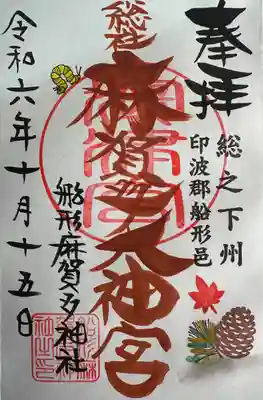 奉拝
総之下州
印波郡船形邑
総社
麻賀多大神宮
船形麻賀多神社
令和六年十月十五日